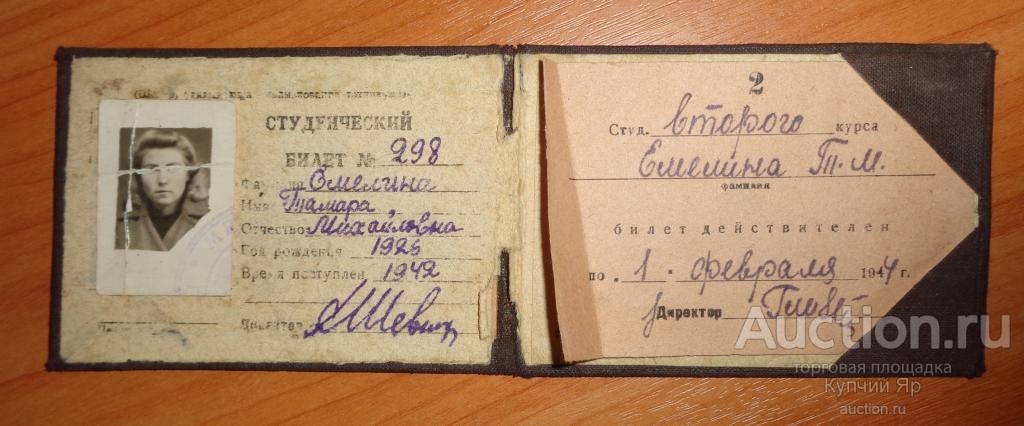 СТУДЕНЧЕСКИЙ
БИЛЕТ № 298
Фамилия Емелина
Имя Тамара
Отчество Михайловна
Год рождения 1926
Время поступлен 1942
Директор
2
Студ. второго курса
Емелина Т. М.
фамилия
билет действителен
по 1 февраля 1944 г.
Директор
Auction.ru
торговая площадка
Купчий Яр
auction.ru